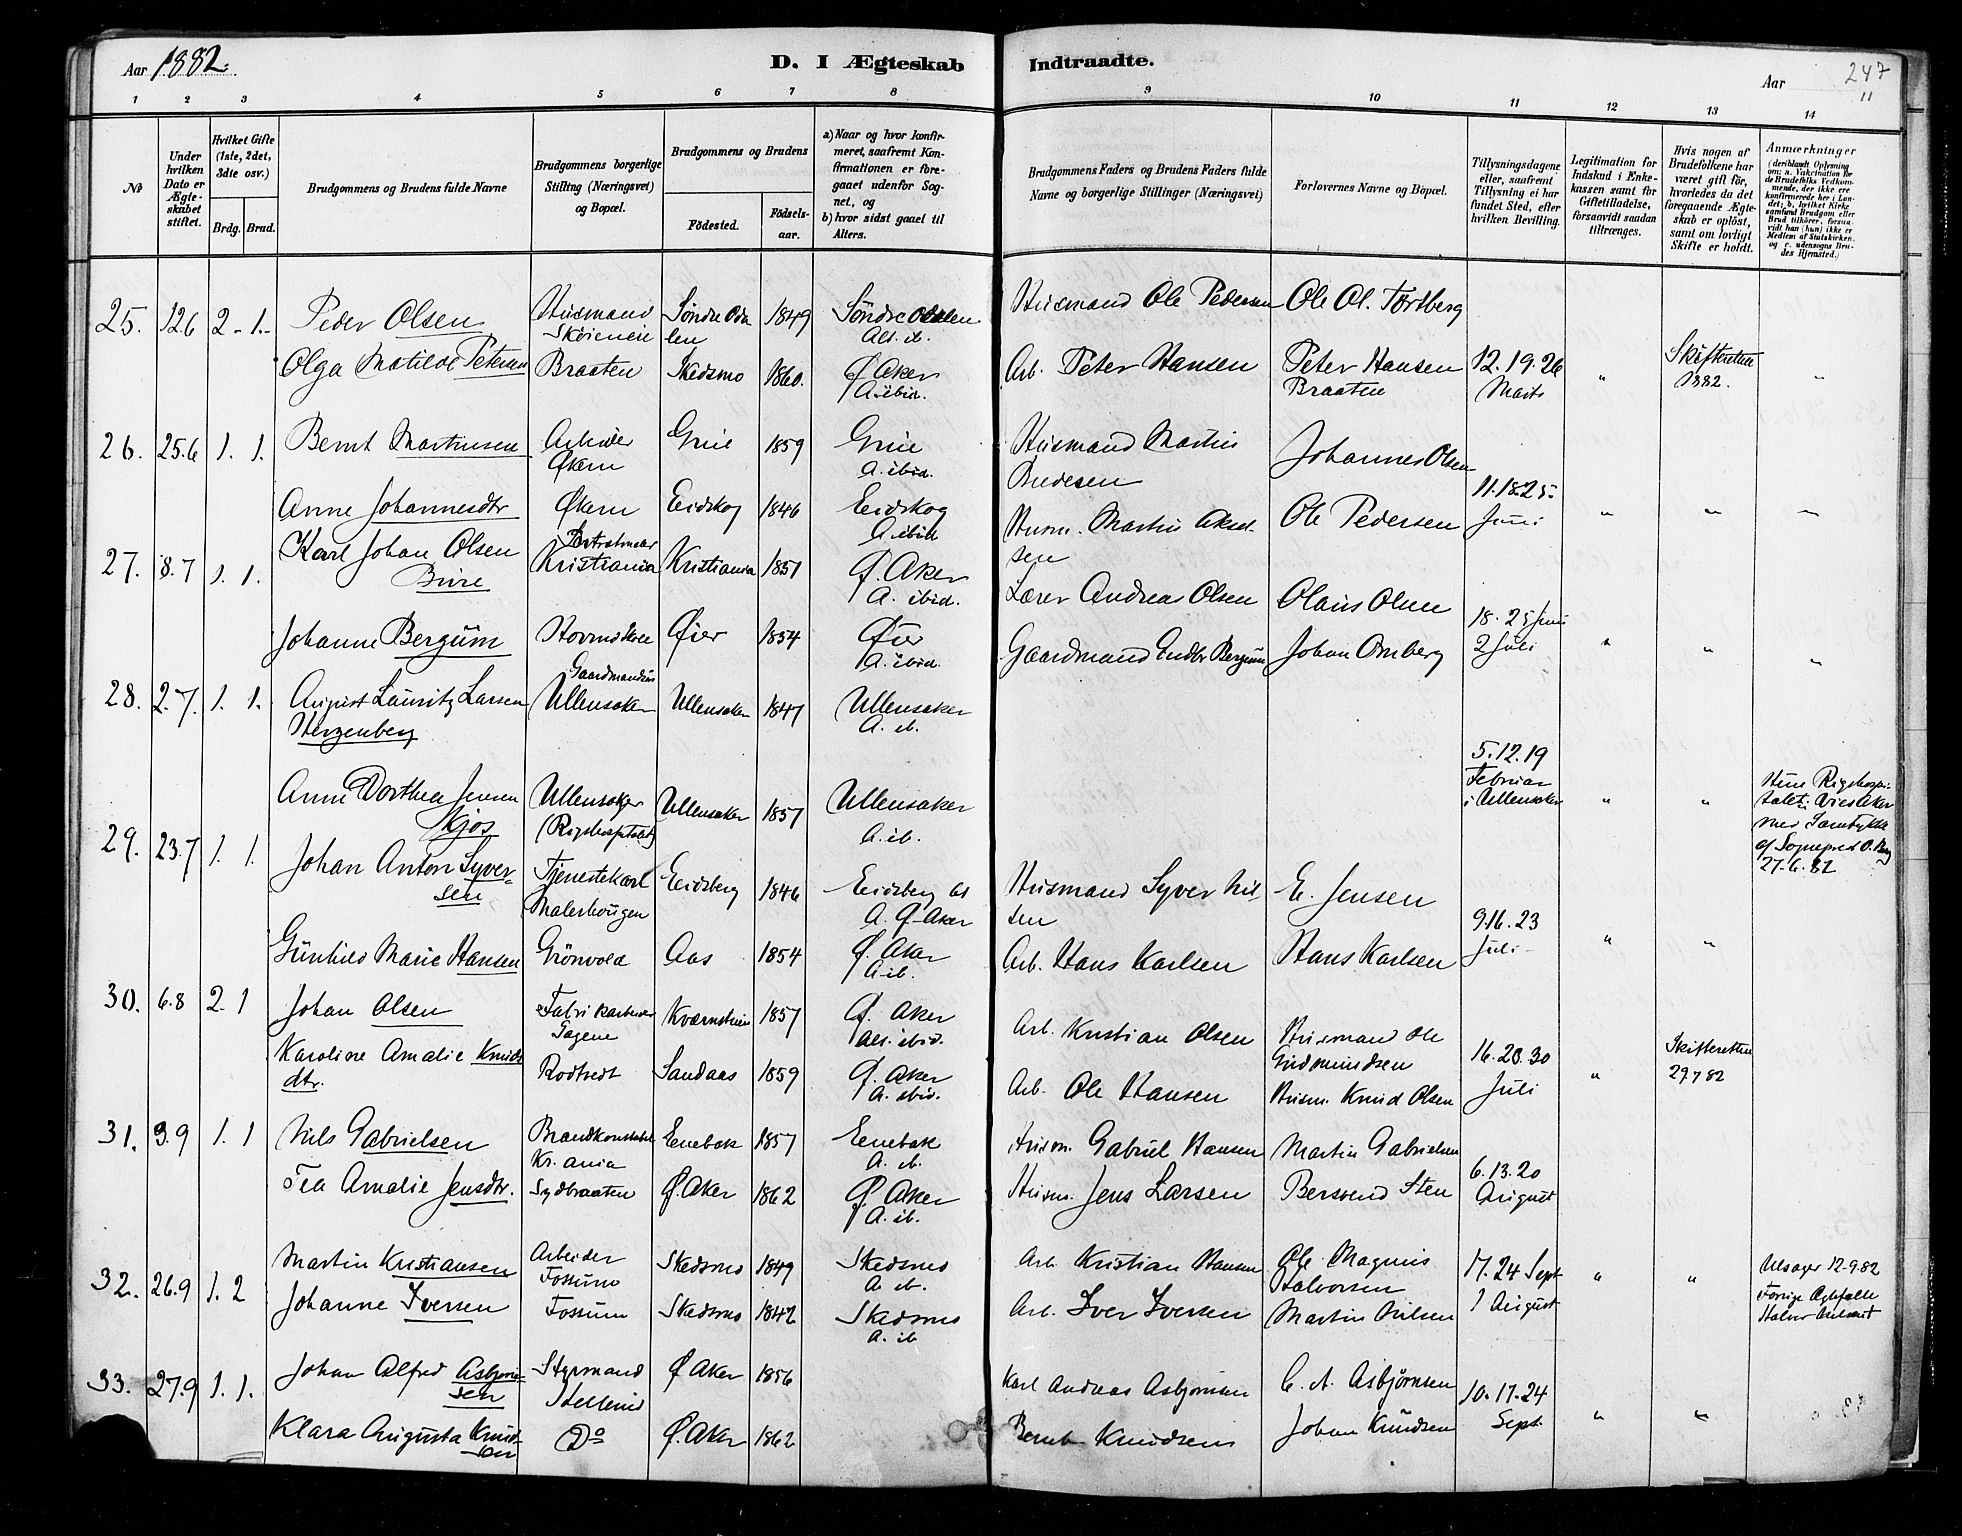 Aar 1882.
D. I Ægteskab Indtraadte.
Aar
247
11
1 2 3 4 5 6 7 8 9 10 11 12 13 14
No
Under hvilken Dato er Ægteskabet stiftet.
Hvilket Gifte (1ste, 2det, 3die osv.)
Brdg. Brud.
Brudgommens og Brudens fulde Navne
Brudgommens borgerlige Stilling (Næringsvei) og Bopæl.
Brudgommens og Brudens
Fødested.
Fødselsaar.
a) Naar og hvor konfirmeret, saafremt Konfirmationen er foregaaet udenfor Sognet, og
b) hvor sidst gaaet til Alters.
Brudgommens Faders og Brudens Faders fulde Navne og borgerlige Stillinger (Næringsvei)
Forlovernes Navne og Bopæl.
Tillysningsdagene eller, saafremt Tillysning ei har fundet Sted, efter hvilken Bevilling.
Legitimation for Indskud i Enkekassen samt for Giftetilladelse, forsaavidt saadan tiltrænges.
Hvis nogen af Brudefolkene har været gift før, hvorledes da det foregaaende Ægteskab er opløst, samt om lovligt Skifte er holdt.
Anmærkninger
(deriblandt Oplysning om: a. Vakcination for de Brudefolks Vedkommende, der ikke ere konfirmerede her i Landet; b. hvilket Kirkesamfund Brudgom eller Brud tilhører, forsaavidt han (hun) ikke er Medlem af Statskirken. og c. udensogns Brudes Hjemsted.)
25. 12.6 2-1- Peder Olsen Husmand Skøiemeie Søndre Odalen 1849 Søndre Odalen Alt. ib. Husmand Ole Pedersen Ole Ol. Tørtberg
Olga Matilde Petersen Braaten Skedsmo 1860. Ø Aker A. ibid. Arb. Peter Hansen Peter Hansen Braaten 12. 19. 26 Marts " Skifteretten 1882. "
26. 25.6 1. 1. Bernt Martinsen Arbeider Økern Grue 1859 Grue A. ibid. Husmand Martin Bredesen Johannes Olsen
Anne Johannesdtr Økern Eidskog 1846 Eidskog A. ibid Husm. Martin Akselsen Ole Pedersen 11. 18. 25. Juni " " "
27. 8.7 1. 1. Karl Johan Olsen Bure Kristiania Kristiania 1851 Ø. Aker A. ibid. Lærer Andreas Olsen Olaus Olsen
Johanne Bergum Øier 1854 Øier A. ibid. Gaardmand Endre Bergum Johan Omberg 18. 25 Juni 2 Juli " " "
28. 2.7. 1. 1. August Lauritz Larsen Herzenberg Gaardmandsøn Ullensaker Ullensaker 1847 Ullensaker A. ib.
Anne Dorthea Jensen Gjos Ullensaker (Rigshospitalet) Ullensaker 1857 Ullensaker A. ib. 5. 12. 19 Februar i Ullensaker " " Rigshospitalet i Aker med Samtykke af Sogneprest O. Berg 27-6-82
29. 23.7 1. 1. Johan Anton Syversen Tjenestekarl Malerhaugen Eidsberg 1846 Eidsberg A. Ø-Aker Husmand Syver Nilsen E. Jensen
Gunhild Marie Hansen Grønvold Aas 1854 Ø. Aker A. ib. Arb. Hans Karlsen Hans Karlsen 9. 16. 23 Juli " "
30. 6.8 2. 1 Johan Olsen Fabrikarbeider Sagene 1857 Ø. Aker Alt. ibid. Arb. Kristian Olsen Husmand Ole Gudmundsen
Karoline Amalie Knudsdtr. Rodtvedt Sandaas 1859 Ø. Aker A. ibid. Arb. Ole Hansen Husm. Knud Olsen 16. 23. 30 Juli " Skifteretten 29.7 82
31. 3.9 1. 1 Nils Gabrielsen Brandkonstabel Kr.ania Enebak 1857 Enebak A. ib. Husm. Gabriel Hansen Martin Gabrielsen
Tea Amalie Jensdtr. Sydbraaten Ø. Aker 1862 Ø. Aker A. ib. Husm. Jens Larsen Bersvend Sten 6. 13. 20 August
32. 26.9 1. 2 Martin Kristiansen Arbeider Fossum Skedsmo 1849 Skedsmo A. ib. Arb. Kristian Hansen Ole Magnus Halvorsen 17. 24 Sept " " Attest 12.9.82
Johanne Iversen Fossum Skedsmo 1842 Skedsmo A. ib Arb. Iver Iversen Martin Nilsen 1 August Forrige Halvor
33. 27.9 1. 1. Johan Alfred Asbjørnsen Styrmand Ø. Aker 1856 Karl Andreas Asbjørnsen C. A. Asbjørnsen 10. 17. 24
Klara Augusta Knudsen Do Ø. Aker 1862 Bernt Knudsen Johan Knudsen Sept. " "